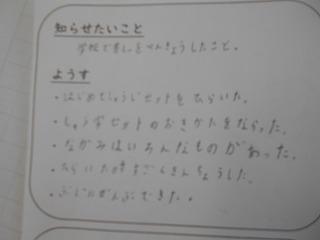 知らせたいこと
学校で書しゃをべんきょうしたこと。
ようす
・はじめてしゅうじセットをひらいた。
・しゅう字セットのおきかたをならった。
・なかみはいろんなものがあった。
・ひらいた時すごくきんちょうした。
・ぶじにぜんぶできた。